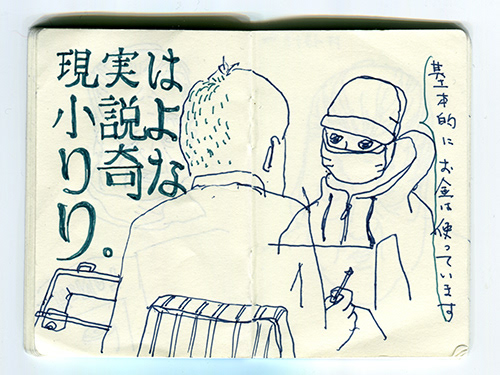 現実は
小説よ
り奇な
り。
基本的に お金は使っています